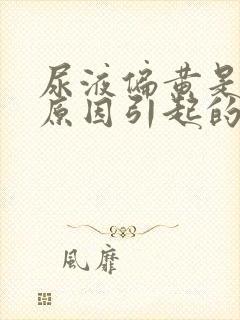 尿液偏黄是
原因引起的
風靡